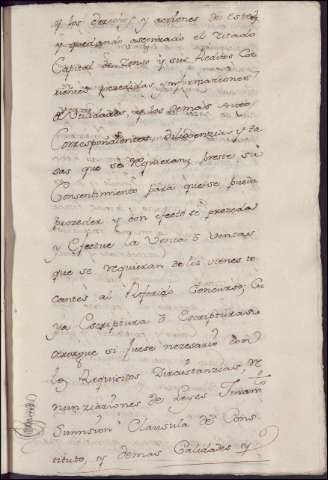 y los derechos y acciones de estos
y quedando asegurado el Citado
Capital de Zenso y sus Reditos Co-
rridos precedidas ynformaciones
de Utilidades, y los demas Autos
Correspondientes, diligencias y co-
sas que se requieran, preste su
Consentimiento para que se pueda
prozeder y con efecto se prozeda
y Efectue la Venta ô Ventas
que se requieran de los vienes to-
cantes al Referido Concurso; Cu-
ya Escriptura ô Escripturas
otorgue si fuese nezesario con
los Requisitos Zircunstanzias Re-
nunziaziones de Leyes
Sumision Clausula de Cons-
tituto, y demas Calidades y